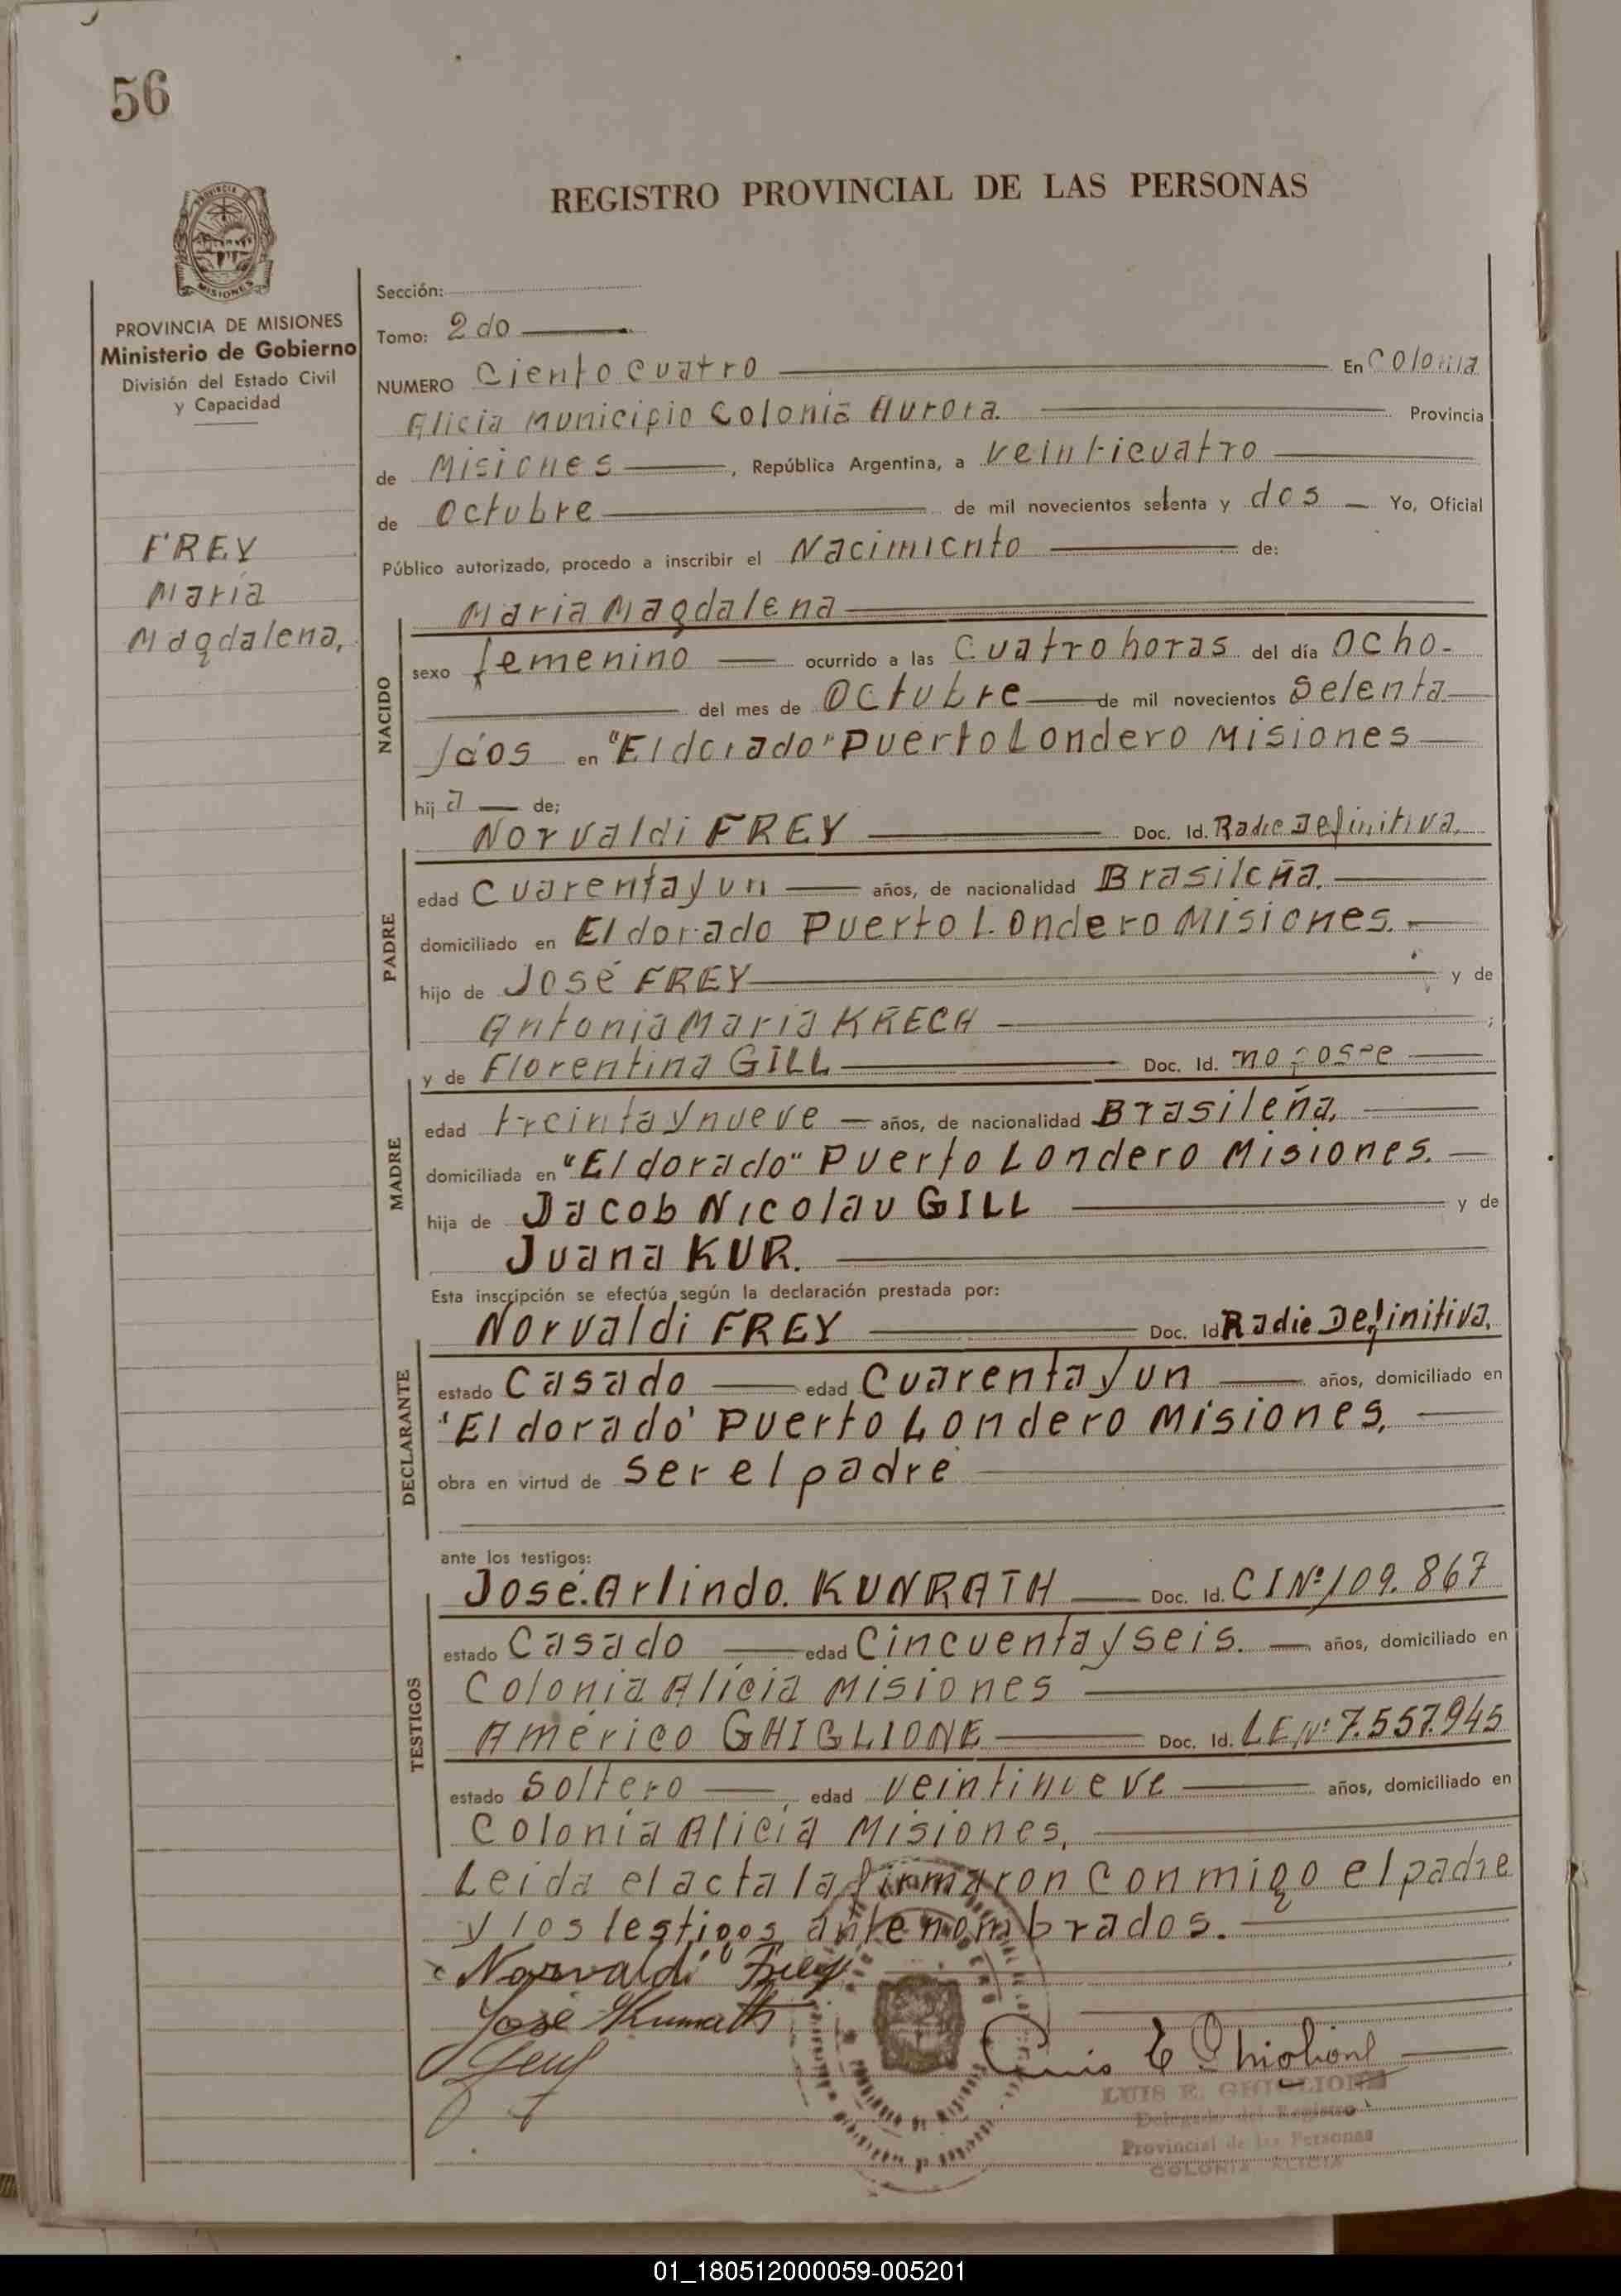 56
REGISTRO PROVINCIAL DE LAS PERSONAS
PROVINCIA
MISIONES
PROVINCIA DE MISIONES
Ministerio de Gobierno
División del Estado Civil
y Capacidad
FREY
María
Magdalena,
Sección:
Tomo: 2do
NUMERO Ciento cuatro En Colonia
Alicia Municipio Colonia Aurora. Provincia
de Misiones, República Argentina, a veinticuatro
de Octubre de mil novecientos setenta y dos Yo, Oficial
Público autorizado, procedo a inscribir el Nacimiento de:
NACIDO
Maria Magdalena
sexo femenino ocurrido a las cuatro horas del día ocho-
del mes de Octubre de mil novecientos setenta
y dos en "Eldorado" Puerto Londero Misiones
hija de;
PADRE
Norvaldi FREY Doc. Id. Radic Definitiva.
edad cuarenta y un años, de nacionalidad Brasileña.
domiciliado en Eldorado Puerto Londero Misiones.
hijo de José FREY y de
Antonia Maria KRECH ;
MADRE
y de Florentina GILL Doc. Id. no posee
edad treinta y nueve años, de nacionalidad Brasileña.
domiciliada en "Eldorado" Puerto Londero Misiones.
hija de Jacob Nicolau GILL y de
Juana KUR.
Esta inscripción se efectúa según la declaración prestada por:
DECLARANTE
Norvaldi FREY Doc. Id Radie Definitiva.
estado Casado edad cuarenta y un años, domiciliado en
'Eldorado' Puerto Londero Misiones.
obra en virtud de ser el padre
ante los testigos:
TESTIGOS
José. Arlindo. KUNRATH Doc. Id. CI Nº 109.867
estado Casado edad Cincuenta y seis. años, domiciliado en
Colonia Alicia Misiones
Américo GHIGLIONE Doc. Id. LE Nº 7.557.945
estado soltero edad veintinueve años, domiciliado en
Colonia Alicia Misiones,
Leida el acta la firmaron conmigo el padre
y los testigos antenombrados.
Norvaldi Frey
José Kunrath
Luis E Ghiglione
LUIS E. GHIGLIONE
Delegado del Registro
Provincial de las Personas
COLONIA ALICIA
01_180512000059-005201